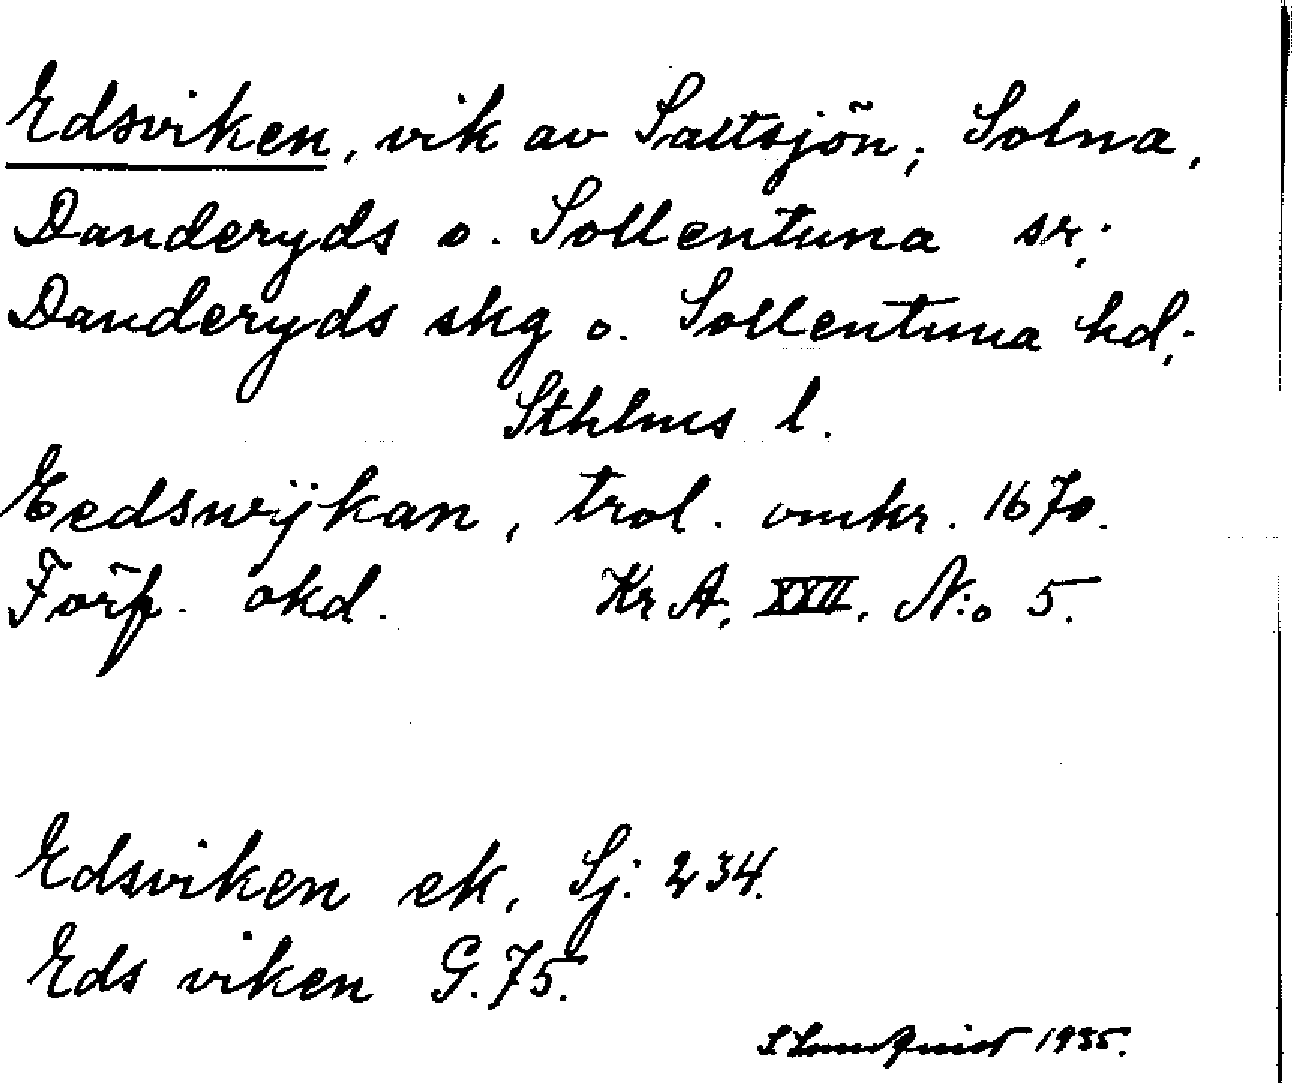 Edsviken, vik av Saltsjön; Solna,
Danderyds o. Sollentuna sr;
Danderyds skg o. Sollentuna hd;
Sthlms l.
Eedswijkan, trol. omkr. 1670.
Förf. okd. Kr A. XXII. N:o 5.
Edsviken ek. Sj. 234.
Eds viken G. 75.
1935.